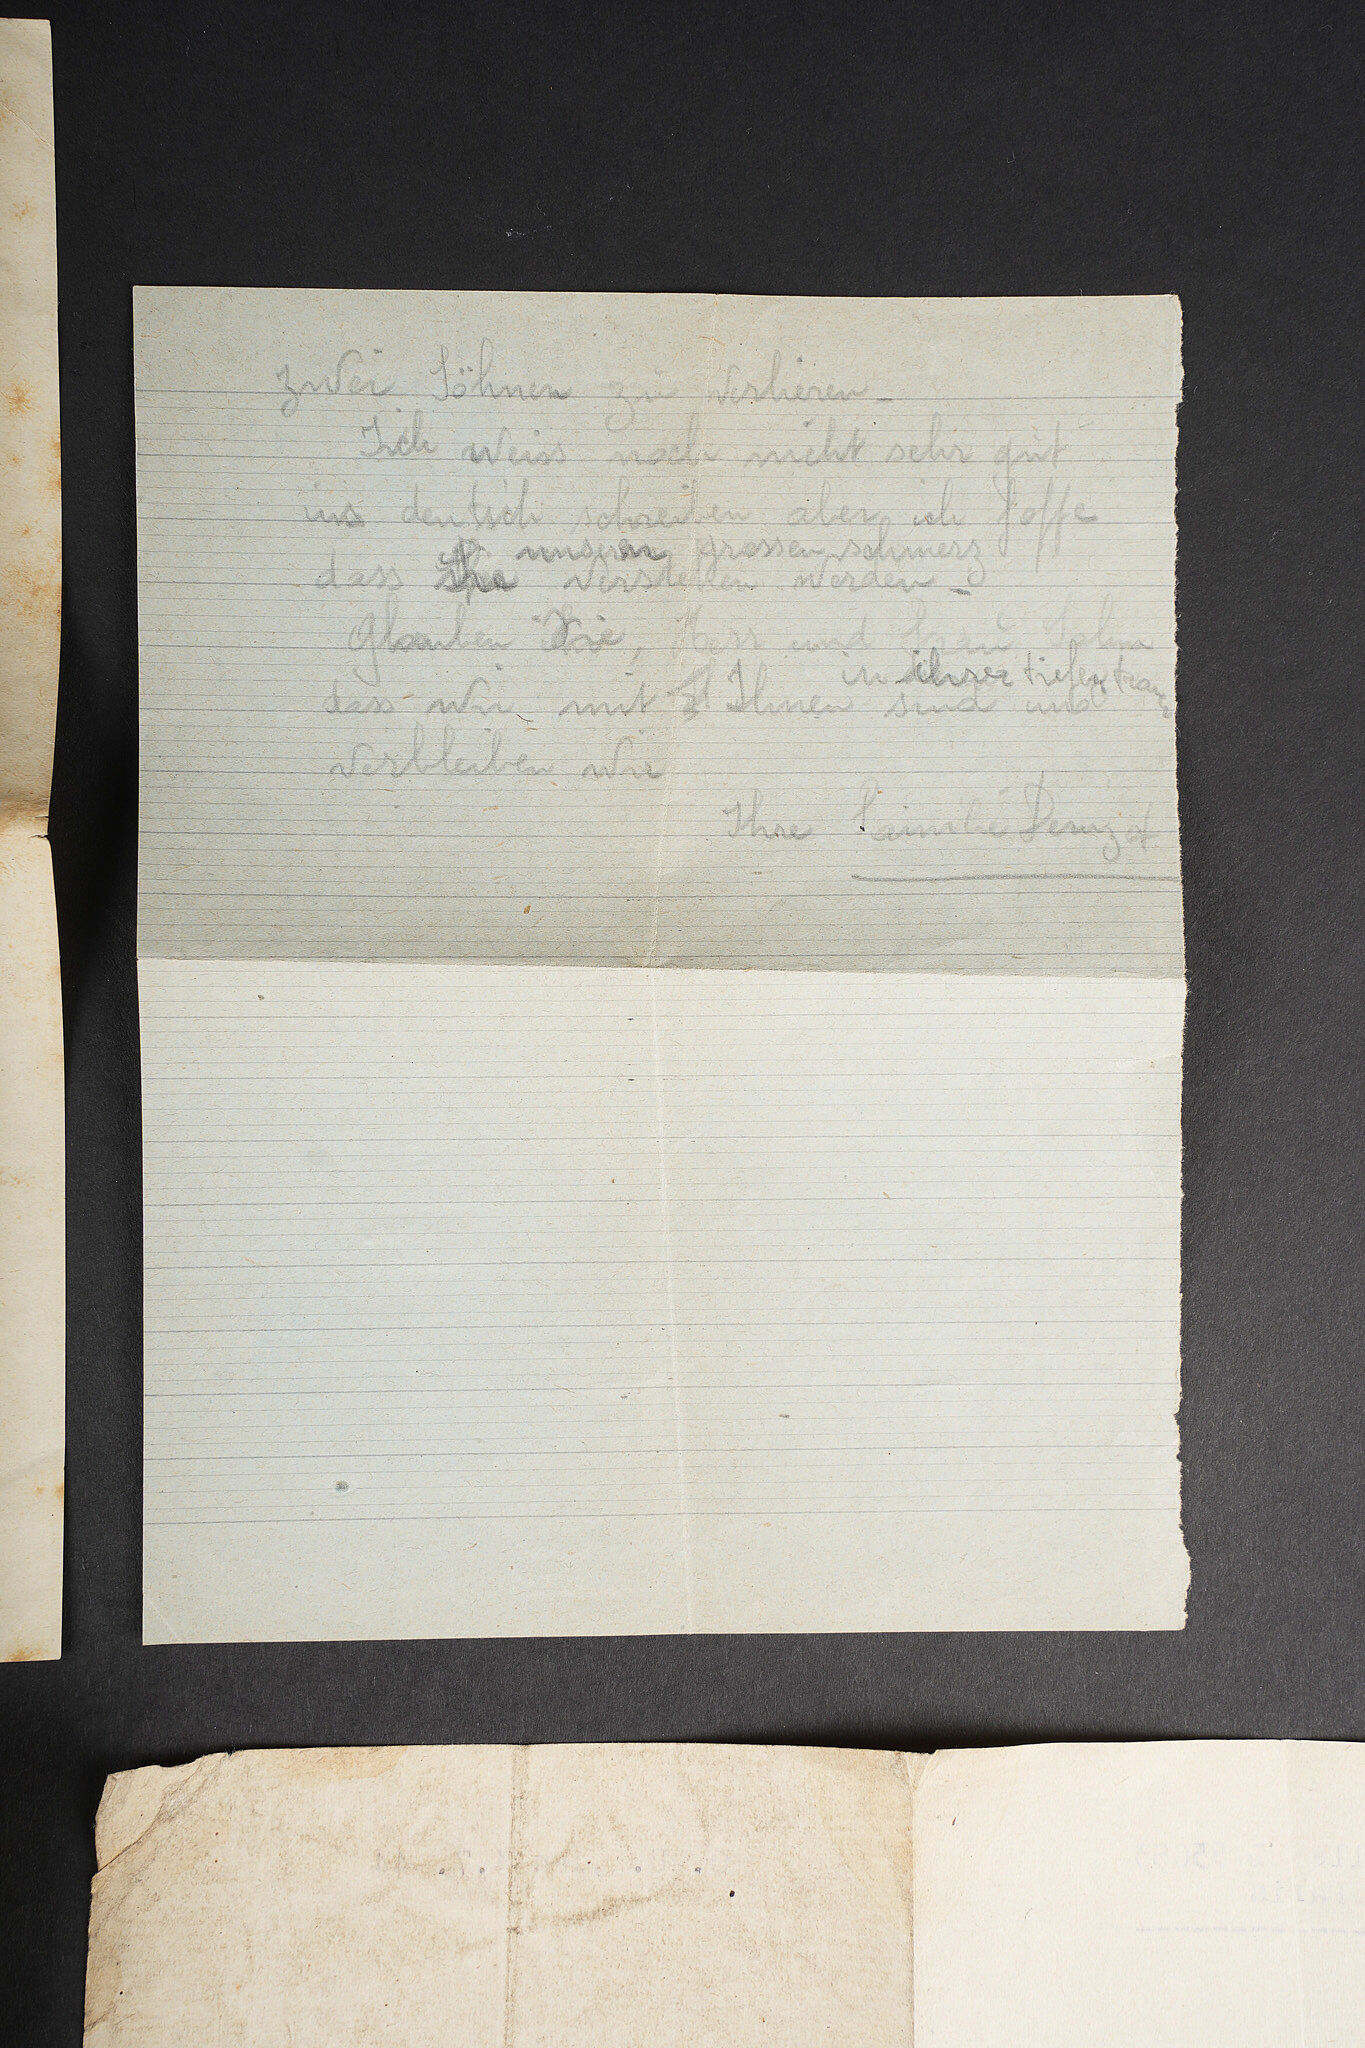 zwei Söhnen zu verlieren -
Ich weiss noch nicht sehr gut
ins deutsch schreiben aber ich hoffe
unseren grossen schmerz
dass Sie verstehen werden -
Glauben Sie, Herr und Frau
in ihrer tiefen
dass wir mit Ihnen sind und
verbleiben wir
Ihre Familie